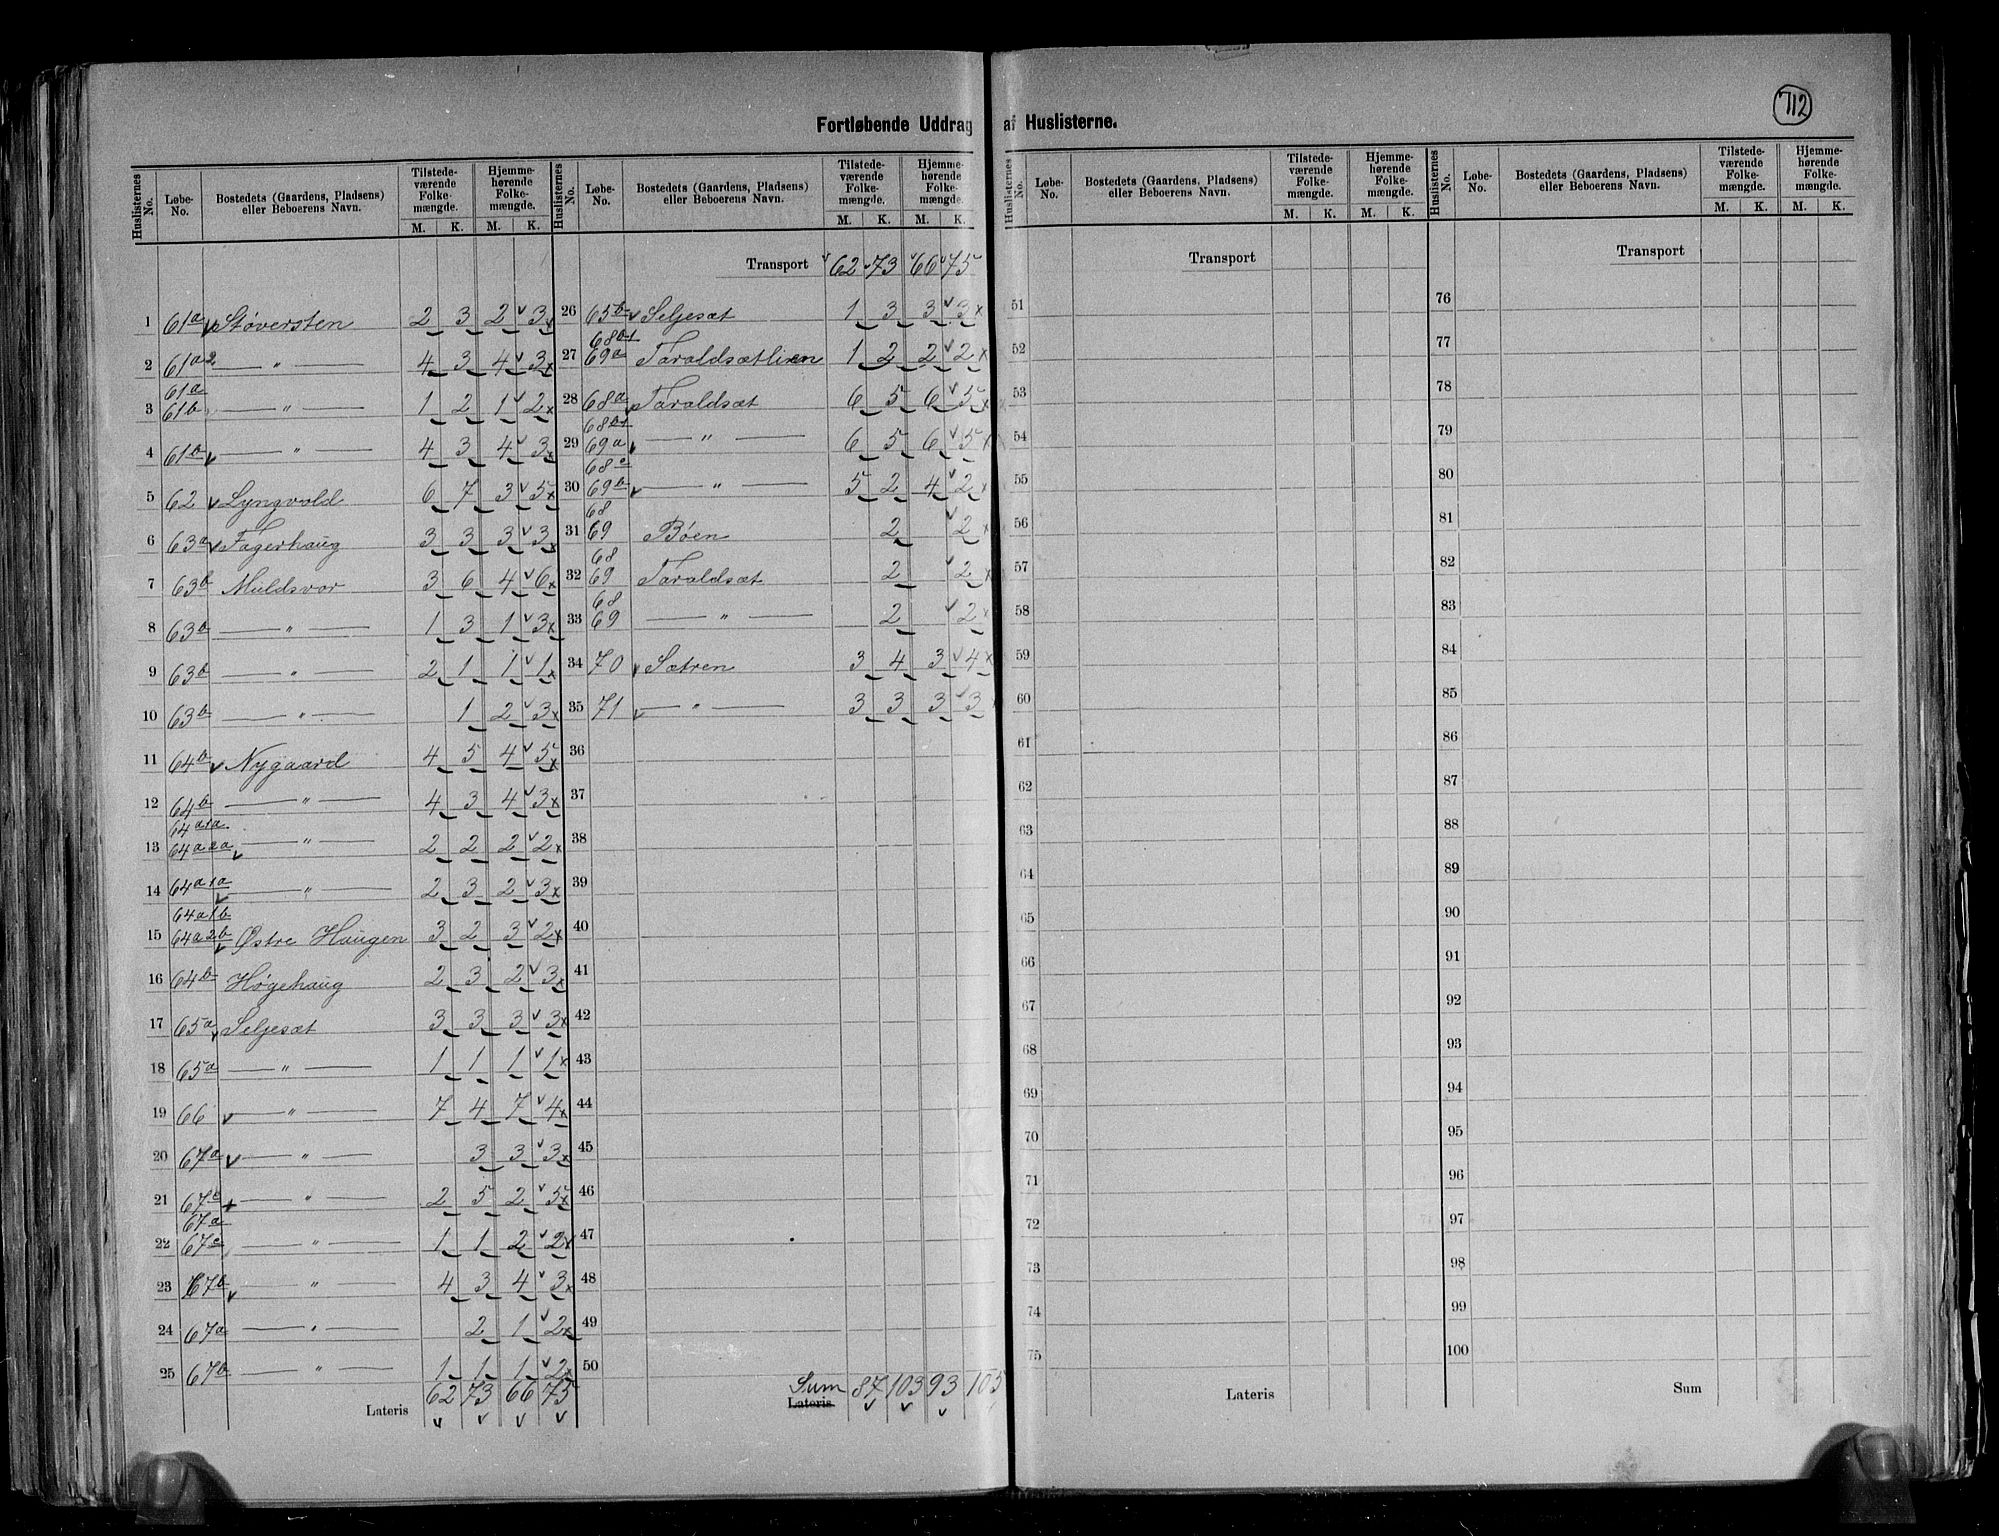 712
Fortløbende Uddrag af Huslisterne.
Huslisternes No. Løbe-No. Bostedets (Gaardens, Pladsens) eller Beboerens Navn. Tilstedeværende Folkemængde. M. K. Hjemmehørende Folkemængde. M. K.
1 61a Støversten 2 3 2 3
2 61a2 — " — 4 3 4 3
3 61a 61b — " — 1 2 1 2
4 61b — " — 4 3 4 3
5 62 Lyngvold 6 7 3 5
6 63a Fagerhaug 3 3 3 3
7 63b Muldsvor 3 6 4 6
8 63b — " — 1 3 1 3
9 63b — " — 2 1 1 1
10 63b — " — 1 2 3
11 64b Nygaard 4 5 4 5
12 64b — " — 4 3 4 3
13 64a1a 64a2a — " — 2 2 2 2
14 64a1a — " — 2 3 2 3
15 64a1b 64a2b Østre Haugen 3 2 3 2
16 64b Høgehaug 2 3 2 3
17 65a Seljesæt 3 3 3 3
18 65a — " — 1 1 1 1
19 66 — " — 7 4 7 4
20 67a — " — 3 3 3
21 67b — " — 2 5 2 5
22 67a 67c — " — 1 1 2 2
23 67b — " — 4 3 4 3
24 67a — " — 2 1 2
25 67b — " — 1 1 1 2
Lateris 62 73 66 75
Huslisternes No. Løbe-No. Bostedets (Gaardens, Pladsens) eller Beboerens Navn. Tilstedeværende Folkemængde. M. K. Hjemmehørende Folkemængde. M. K.
Transport 62 73 66 75
26 65b Seljesæt 1 3 3 3
27 68b1 69a Taraldsætlien 1 2 2 2
28 68a Taraldsæt 6 5 6 5
29 68b1 69a — " — 6 5 6 5
30 68c 69b — " — 5 2 4 2
31 68 69 Bøen 2 2
32 68 69 Taraldsæt 2 2
33 68 69 — " — 2 2
34 70 Sætren 3 4 3 4
35 71 — " — 3 3 3 3
36
37
38
39
40
41
42
43
44
45
46
47
48
49
50
Sum Lateris 87 103 93 105
Huslisternes No. Løbe-No. Bostedets (Gaardens, Pladsens) eller Beboerens Navn. Tilstedeværende Folkemængde. M. K. Hjemmehørende Folkemængde. M. K.
Transport
51
52
53
54
55
56
57
58
59
60
61
62
63
64
65
66
67
68
69
70
71
72
73
74
75
Lateris
Huslisternes No. Løbe-No. Bostedets (Gaardens, Pladsens) eller Beboerens Navn. Tilstedeværende Folkemængde. M. K. Hjemmehørende Folkemængde. M. K.
Transport
76
77
78
79
80
81
82
83
84
85
86
87
88
89
90
91
92
93
94
95
96
97
98
99
100
Sum